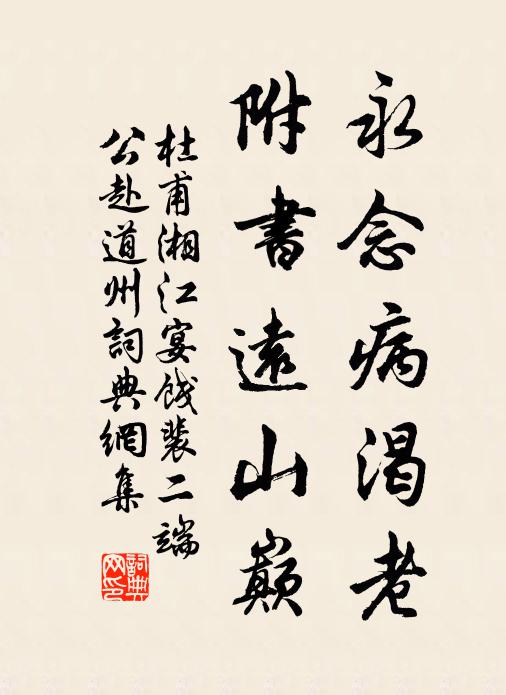 永念病渴老
附書遠山巔
杜甫湘江宴餞裴二端
公赴道州詞典網集
詞典網印